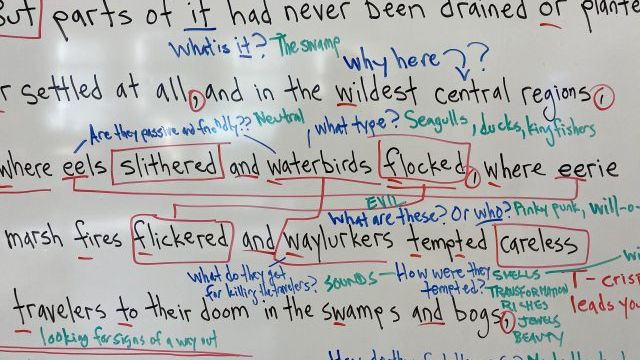 But parts of it had never been drained or plante
What is it? The swamp
why here ??
r settled at all, and in the wildest central regions,
Are they passive and friendly?? Neutral
what type? Seagulls, ducks, kingfishers
where eels slithered and waterbirds flocked, where eerie
EVIL
What are these? Or who? Pinky punk, will-o-
marsh fires flickered and waylurkers tempted careless
What do they get for killing the travelers?
SOUNDS
How were they tempted?
SMELLS
TRANSFORMATION
RICHES
JEWELS
BEAUTY
T-cris
leads you
travelers to their doom in the swamps and bogs,
looking for signs of a way out